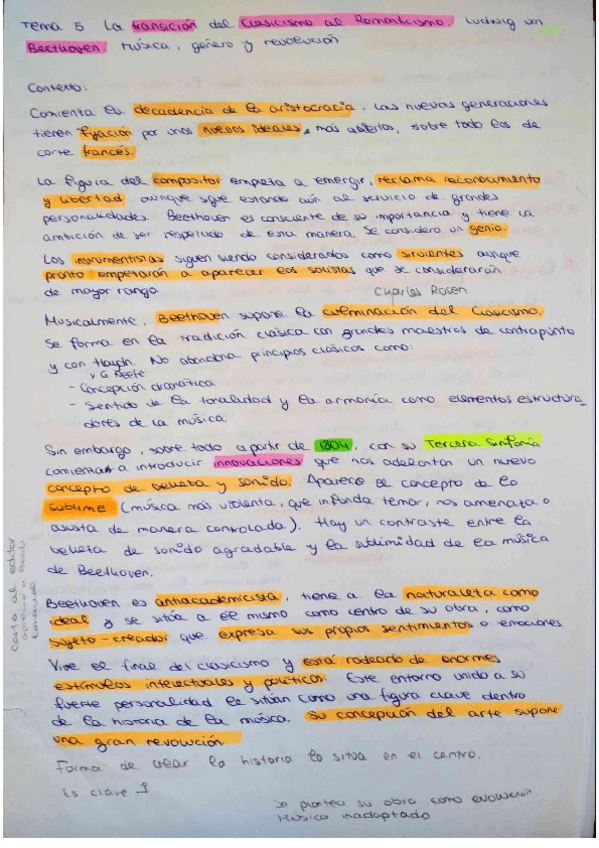 Tema 5 La transición del Clasicismo al Romanticismo Ludwig van
Beethoven Música, género y revolución
Contexto:
Comienza la decadencia de la aristocracia. Las nuevas generaciones
tienen fijación por unos nuevos ideales, más abiertos, sobre todo los de
corte francés.
La figura del compositor empieza a emerger, reclama reconocimiento
y libertad aunque sigue estando aún al servicio de grandes
personalidades. Beethoven es consciente de su importancia y tiene la
ambición de ser respetado de esta manera. Se considera un genio.
Los instrumentistas siguen siendo considerados como sirvientes aunque
pronto empezarán a aparecer los solistas que se considerarán
de mayor rango.
Charles Rosen
Musicalmente, Beethoven supone la culminación del Clasicismo.
Se forma en la tradición clásica con grandes maestros de contrapunto
y con Haydn. No abandona principios clásicos como:
- Concepción dramática
- Sentido de la tonalidad y la armonía como elementos estructura_
dores de la música.
Sin embargo, sobre todo a partir de 1804, con su Tercera Sinfonía
comienza a introducir innovaciones que nos adelantan un nuevo
concepto de belleza y sonido. Aparece el concepto de lo
sublime (música más violenta, que infunda temor, nos amenaza o
asusta de manera controlada). Hay un contraste entre la
belleza de sonido agradable y la sublimidad de la música
de Beethoven.
Carta al editor
Beethoven es antiacademicista, tiene a la naturaleza como
ideal y se sitúa a él mismo como centro de su obra, como
sujeto-creador que expresa sus propios sentimientos o emociones.
Vive el final del clasicismo y está rodeado de enormes
estímulos intelectuales y políticos. Este entorno unido a su
fuerte personalidad le sitúan como una figura clave dentro
de la historia de la música. Su concepción del arte supone
una gran revolución
Forma de crear la historia lo situa en el centro.
Es clave
Se plantea su obra como evolución
Música inadaptado